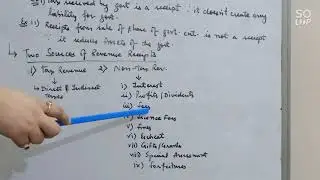 SO
Ex i) Tax received by govt is a receipt ∵ it doesn't create any
liability for govt.
Ex ii) Receipts from sale of
govt. is not a receipt
∵ it reduces assets of the govt.
↳ Two Sources of Revenue Receipts
1) Tax Revenue 2) Non-Tax Rev.
↳ Direct & Indirect
Taxes
i) Interest
ii) Profits/Dividents
iii) Fees
iv) License Fees
v) Fines
vi) Escheat
vii) Gifts/Grants
viii) Special Assessment
ix) Forfeitures